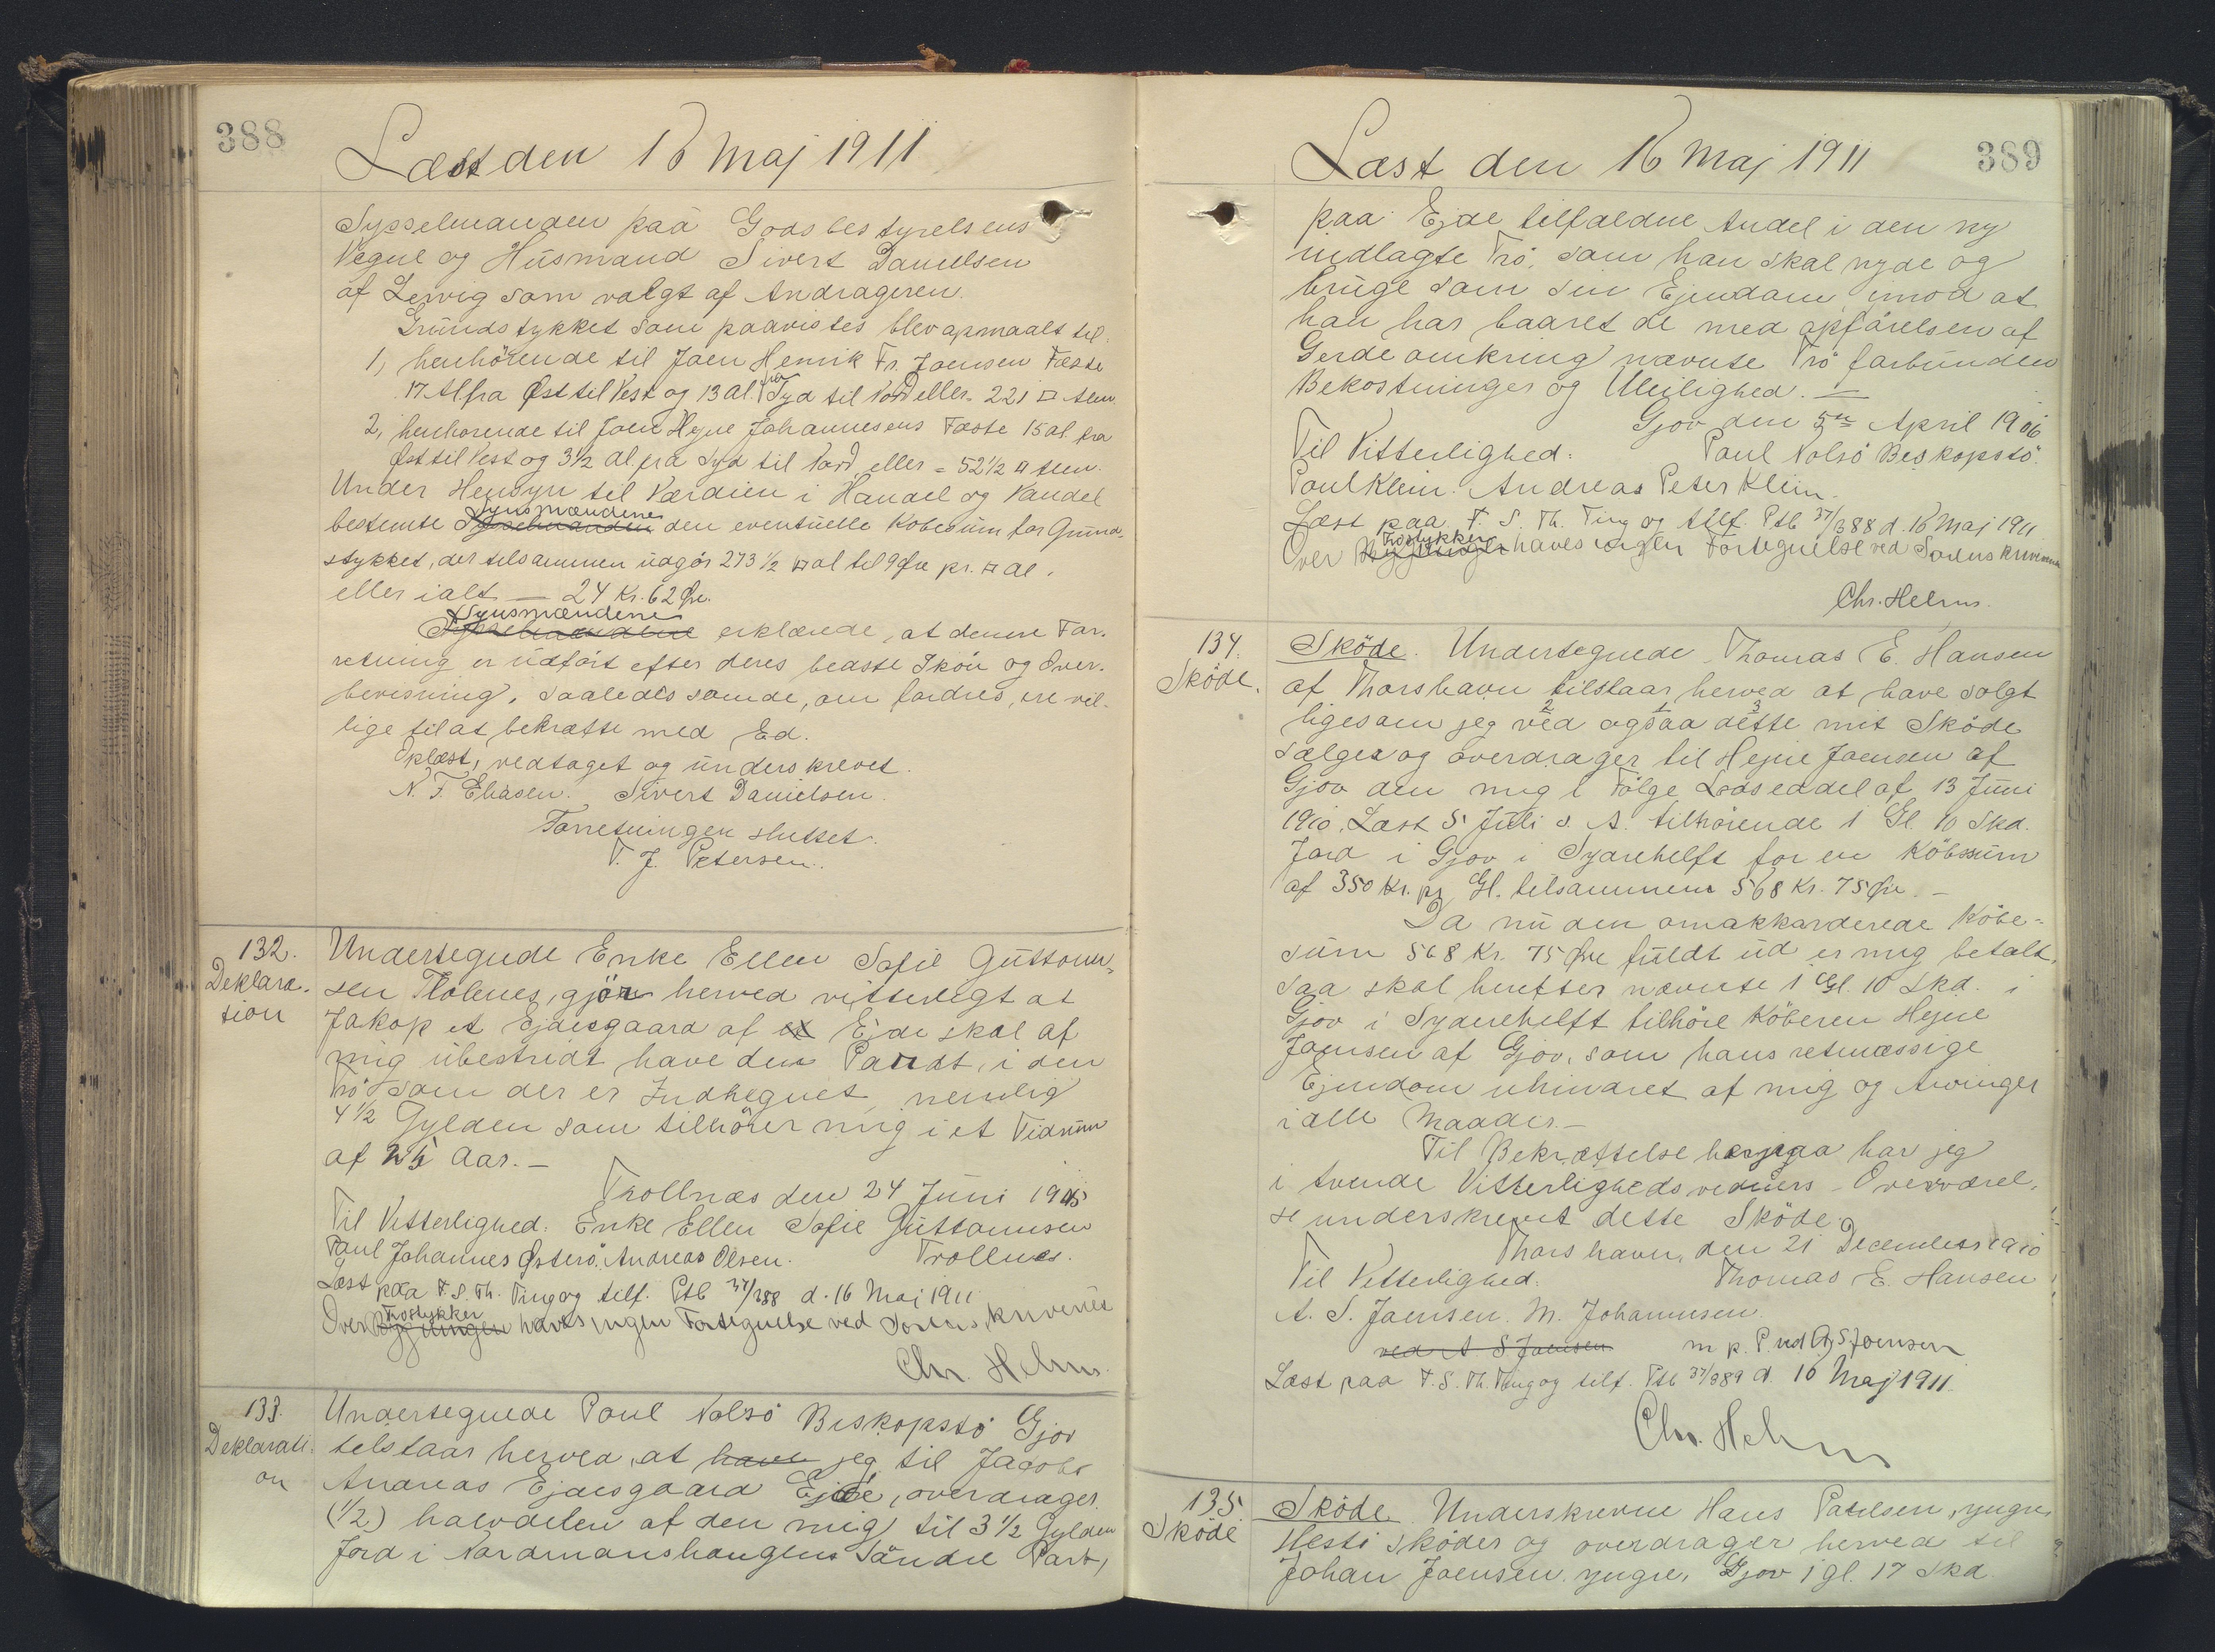 388
Læst den 16 Maj 1911
Sysselmanden paa Godsbestyrelsens
Vegne og Husmand Sivert Danielsen
af Lervig som valgt af Andrageren.
Grundstykket som paavistes blev opmaalt til.
1, henhörende til Joen Henrik Fr. Joensen Fæste
17 Al fra Øst til Vest og 13 al. fra Syd til Nord eller = 221 □ Alen.
2, henhorende til Joen Hejne Johannesens Fæste 15 al. fra
Øst til Vest og 3 1/2 al. fra Syd til Nord eller = 52 1/2 □ Alen.
Under Hensyn til Værdien i Handel og Vandel
bestemte Sysselmanden Synsmændene den eventuelle Köbesum for Grund-
stykket, der tilsammen udgör 273 1/2 □ al til 9 Øre pr. □ al.
eller ialt — 24 Kr. 62 Øre.
Sysselmændene Synsmændene erklærede, at denne For-
retning er udfört efter deres bedste Skön og Over-
bevisning, saaledes som de, om fordres, ere vil-
lige til at bekræfte med Ed.
Oplæst, vedtaget og underskrevet.
N. F. Eliasen. Sivert Danielsen.
Forretningen sluttet.
T. J. Petersen.
132.
Deklara-
tion
Undertegnede Enke Ellen Sofie Guttorm-
sen Trölenes, gjör herved vitterligt at
Jakop A Ejdesgaard af Ejde skal af
mig ubestridt have den Pardt, i den
Trö som der er Indhegnet, nemlig
4 1/2 Gylden som tilhörer mig i et Tidrum
af 25 Aar. —
Trollnæs den 24 Juni 1905
Til Vitterlighed. Enke Ellen Sofie Guttormsen
Poul Johannes Österö. Andreas Olsen. Trollnes.
Læst paa F. S. Th. Ting og tilf. Ptb 37/388 d. 16 Maj 1911
Over Bygslinger Tröstykker haves ingen Fortegnelse ved Sorenskriveriet
Chr. Helms.
133.
Deklarati-
on
Undertegnede Poul Nolsö Biskopstö Gjov
tilstaar herved, at have jeg til Jacob
Andreas Ejdesgaard Ejde, overdrager
(1/2) halvdelen af den mig til 3 1/2 Gylden
Jord i Nordmanshaugens Söndre Part,
389
Læst den 16 Maj 1911
paa Ejde tilfaldne Andel i den ny
indlagte Trö, som han skal nyde og
bruge som sin Ejendom imod at
han har baaret de med opförelsen af
Gerde omkring nævnte Trö forbunden
Bekostninger og Uleilighed. —
Gjov den 5te April 1906
Til Vitterlighed: Poul Nolsö Biskopstö.
Poul Klein. Andreas Peter Klein.
Læst paa F. S. Th. Ting og tilf. Ptb 37/388 d. 16 Maj 1911
Over Bygslinger Tröstykker haves ingen Fortegnelse ved Sorenskriveriet
Chr. Helms.
134.
Sköde.
Sköde. Undertegnede Thomas E. Hansen
af Thorshavn tilstaar herved at have solgt
ligesom jeg ved ogsaa dette mit Sköde
2 1 3
sælger og overdrager til Hejne Joensen af
Gjov den mig i Fölge Lodseddel af 13 Juni
1910, Læst 5 Juli s. A. tilhörende 1 Gl. 10 Skd.
Jord i Gjov i Syderhelft for en Köbssum
af 350 Kr. pr Gl. tilsammen 568 Kr. 75 Øre —
Da nu den omakkorderede Köbe-
sum 568 Kr. 75 Øre fuldt ud er mig betalt,
saa skal herefter nævnte 1 Gl. 10 Skd. i
Gjov i Syderhelft tilhöre Köberen Hejne
Joensen af Gjov, som hans retmæssige
Ejendom uhindret af mig og Arvinger
i alle Maader. —
Til Bekræftelse herpaa har jeg
i tvende Vitterlighedsvidners Overværel-
se underskrevet dette Sköde.
Thorshavn, den 21 December 1910
Til Vitterlighed. Thomas E. Hansen
A. S. Joensen. M. Johannesen.
ved A S Joensen m. p. P. ved A. S. Joensen
Læst paa F. S. Th. Ting og tilf. Ptb 37/389 d. 16 Maj 1911.
Chr. Helms
135
Sköde
Sköde Underskrevne Hans Poulsen, yngre,
Hesti Sköder og overdrager herved til
Johan Joensen, yngre, Gjov 1 gl. 17 Skd